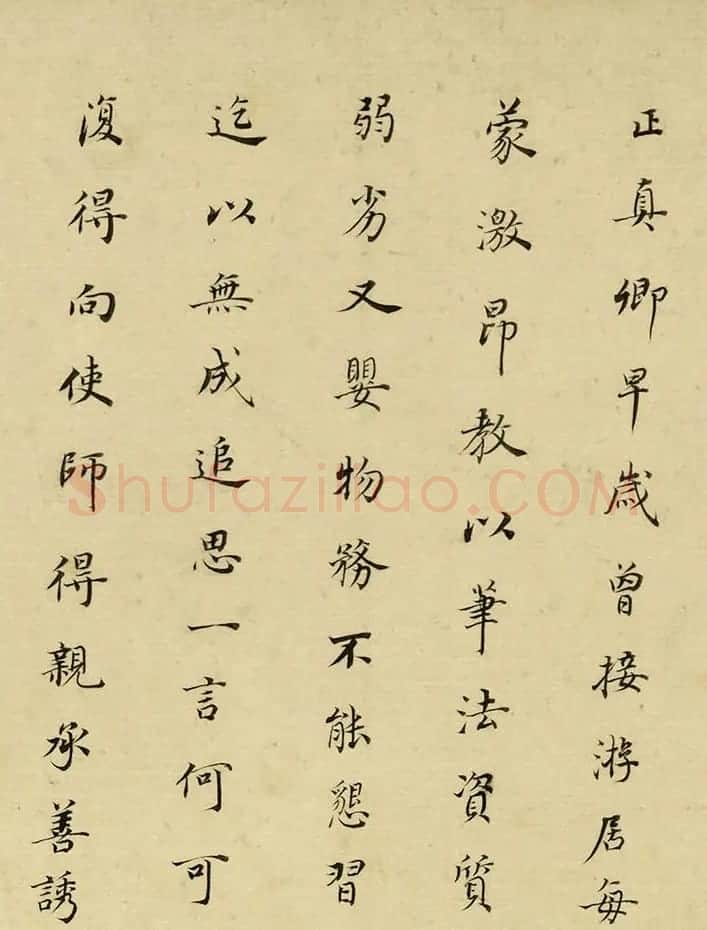 正真卿早歲曾接游居每
蒙激昂教以筆法資質
弱劣又嬰物務不能懇習
迄以無成追思一言何可
復得向使師得親承善誘
Shufaziliao.COM